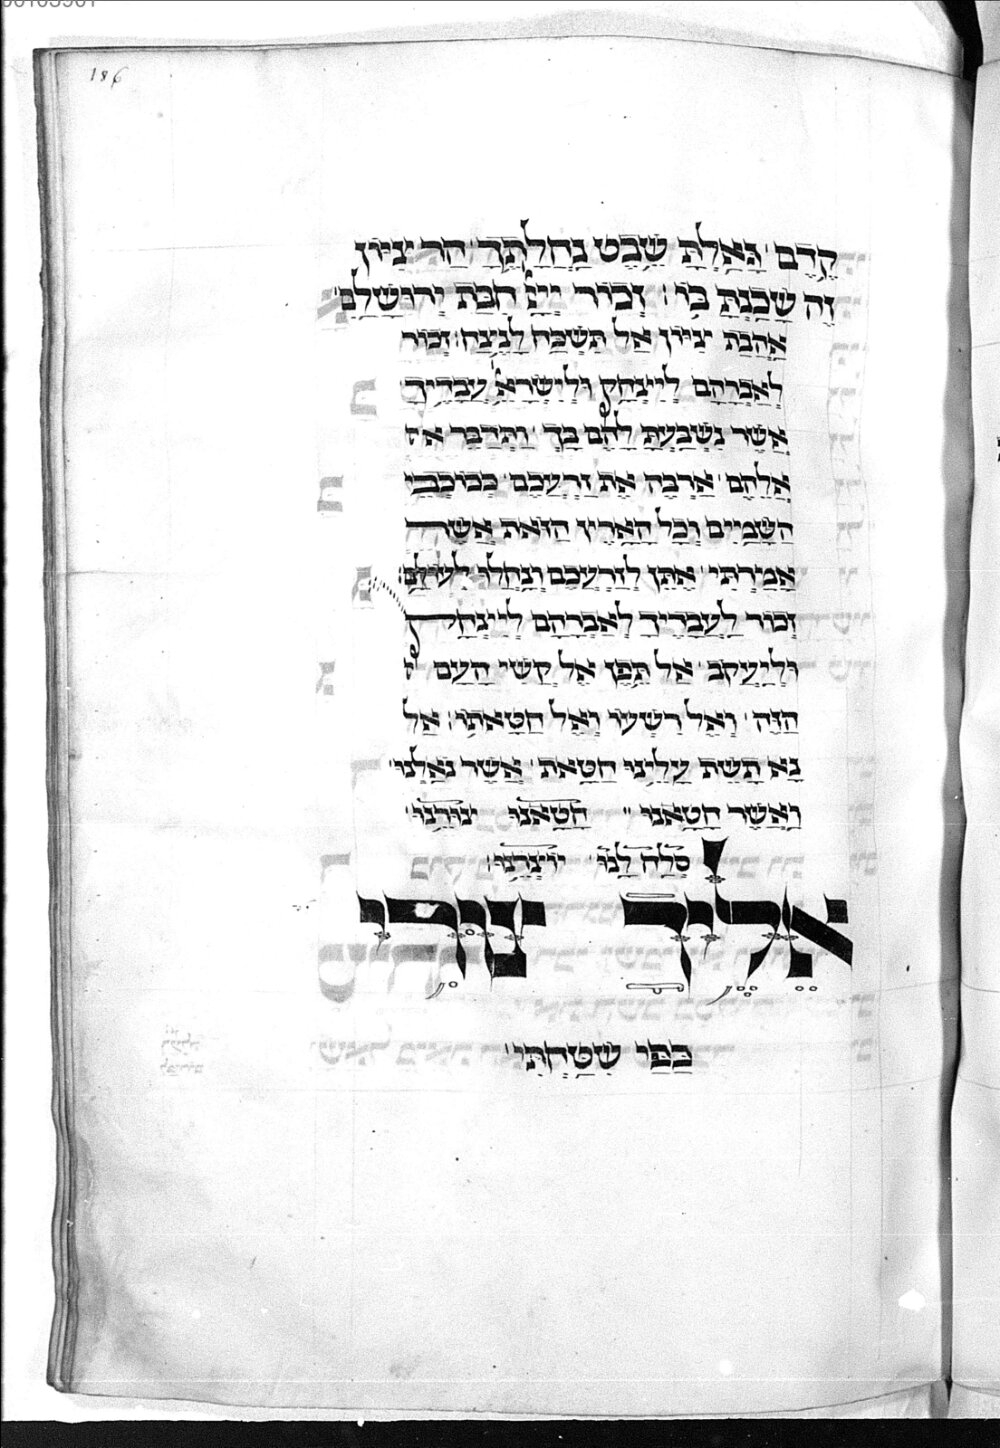 186
קֶדֶם׳ גָּאַלְתָּ שֵׁבֶט נַחֲלָתֶךָ׳ הַר צִיּוֹן
זֶה שָׁכַנְתָּ בּוֹ: זְכוֹר יְיָ חִבַּת יְרוּשָׁלַם׳
אַהֲבַת צִיּוֹן אַל תִּשְׁכַּח לָנֶצַח: זְכוֹר
לְאַבְרָהָם לְיִצְחָק וּלְיִשְׂרָאֵ׳ עֲבָדֶיךָ
אֲשֶׁר נִשְׁבַּעְתָּ לָהֶם בָּךְ׳ וַתְּדַבֵּר
אֲלֵהֶם׳ אַרְבֶּה אֶת זַרְעֲכֶם׳ כְּכוֹכְבֵי
הַשָּׁמַיִם וְכָל הָאָרֶץ הַזֹּאת אֲשֶׁר
אָמַרְתִּי׳ אֶתֵּן לְזַרְעֲכֶם וְנָחֲלוּ לְעוֹלָם:
זְכוֹר לַעֲבָדֶיךָ לְאַבְרָהָם לְיִצְחָק
וּלְיַעֲקֹב׳ אַל תֵּפֶן אֶל קְשִׁי הָעָם
הַזֶּה׳ וְאֶל רִשְׁעוֹ וְאֶל חַטָּאתוֹ: אַל
נָא תָשֵׁת עָלֵינוּ חַטָּאת׳ אֲשֶׁר נוֹאַלְנוּ׳
וַאֲשֶׁר חָטָאנוּ ״ חָטָאנוּ צוּרֵנוּ׳
סְלַח לָנוּ׳ יוֹצְרֵנוּ:
אֵלֶיךָ צוּרִי
כַּפַּי שִׁטַּחְתִּי׳